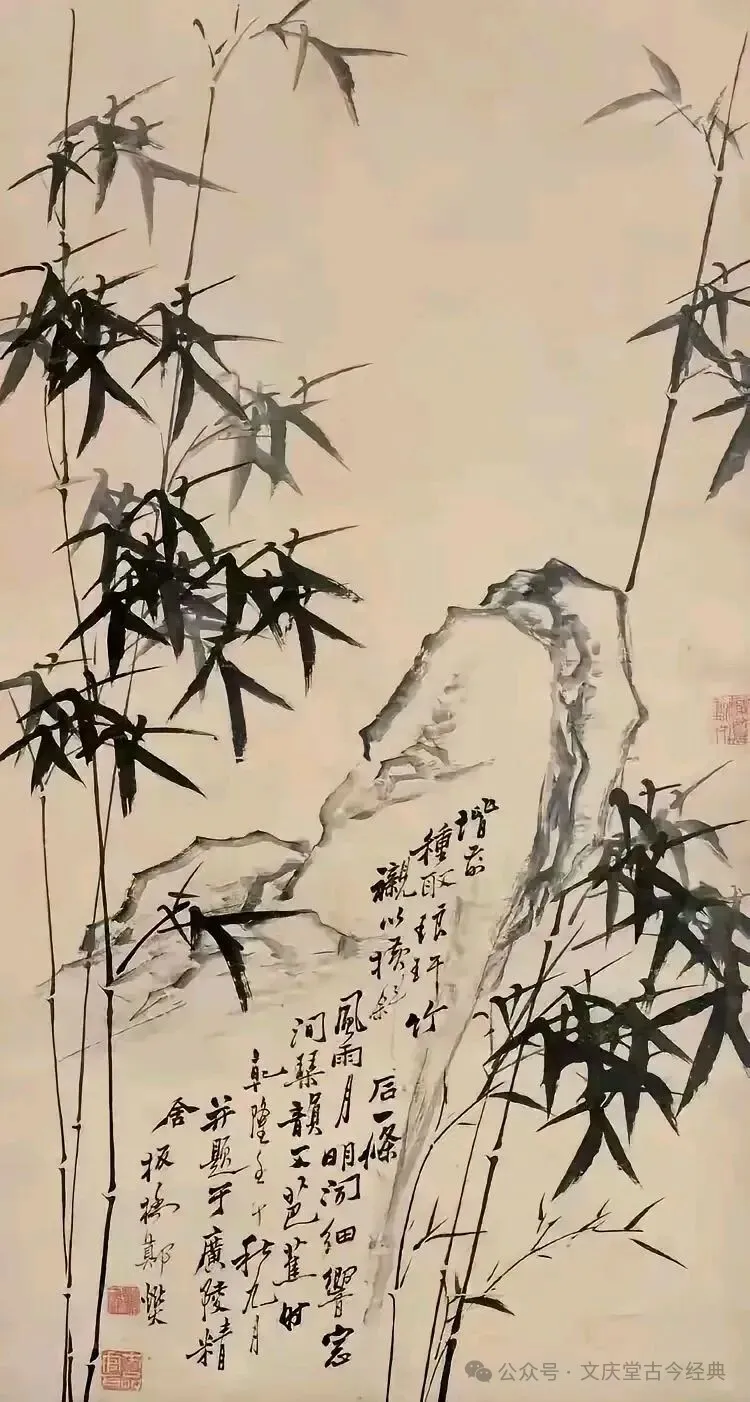 階前
種取琅玕竹
襯以橫斜
石一條
風雨月明聞細響窓
間琴韻又芭蕉時
乾隆壬午秋九月
并題于廣陵精
舍板橋鄭燮
公众号 · 文庆堂古今经典